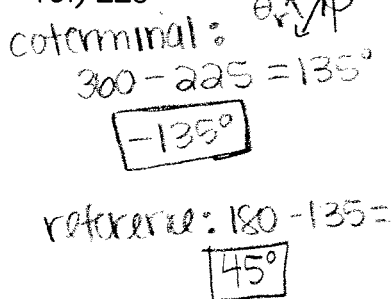 coterminal:
300-225=135°
-135°
reference: 180-135=
45°